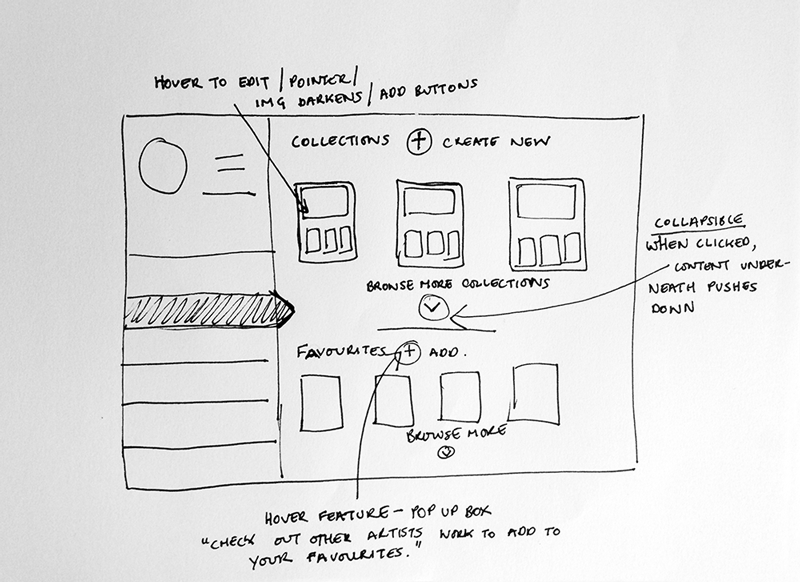 HOVER TO EDIT / POINTER /
IMG DARKENS / ADD BUTTONS
COLLECTIONS + CREATE NEW
BROWSE MORE COLLECTIONS
COLLAPSIBLE
WHEN CLICKED,
CONTENT UNDER-
NEATH PUSHES
DOWN
FAVOURITES + ADD.
BROWSE MORE
HOVER FEATURE - POP UP BOX
"CHECK OUT OTHER ARTISTS WORK TO ADD TO
YOUR FAVOURITES."